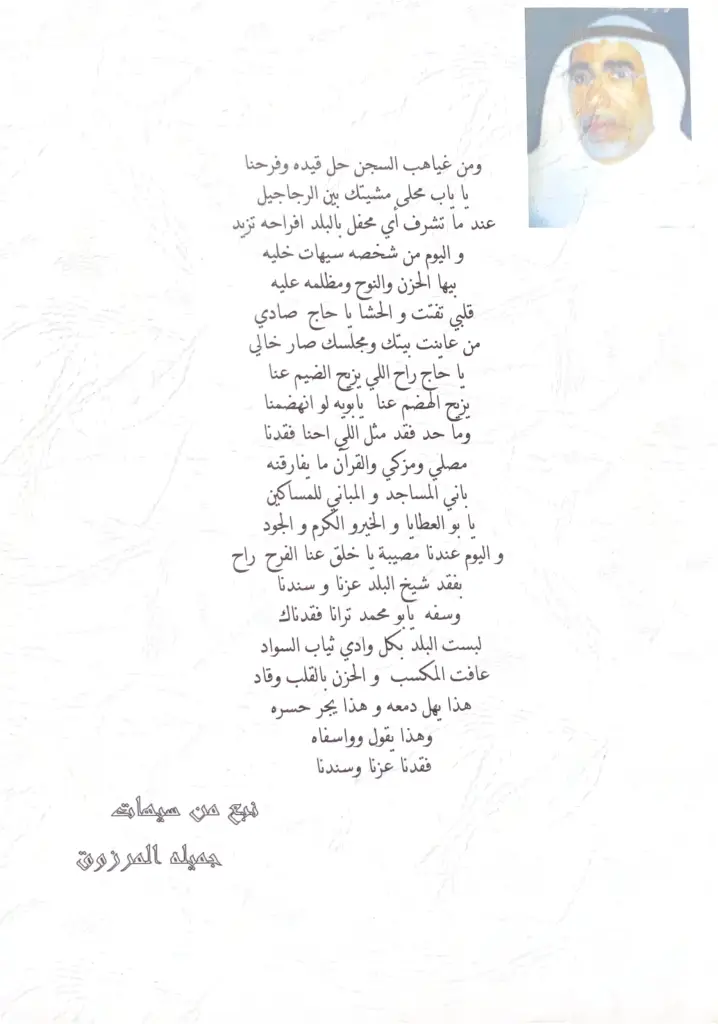 ومن غياهب السجن حل قيده وفرحنا
يا ياب محلى مشيتك بين الرجاجيل
عند ما تشرف أي محفل بالبلد افراحه تزيد
و اليوم من شخصه سيهات خليه
بيها الحزن والنوح ومظلمه عليه
قلبي تفتت و الحشا يا حاج صادي
من عاينت بيتك ومجلسك صار خالي
يا حاج راح اللي يزيح الضيم عنا
يزيح الهضم عنا يابويه لو انهضمنا
وما حد فقد مثل اللي احنا فقدنا
مصلي ومزكي والقرآن ما يفارقنه
باني المساجد و المباني للمساكين
يا بو العطايا و الخيرو الكرم و الجود
و اليوم عندنا مصيبة يا خلق عنا الفرح راح
بفقد شيخ البلد عزنا و سندنا
وسفه يابو محمد ترانا فقدناك
لبست البلد بكل وادي ثياب السواد
عافت المكسب و الحزن بالقلب وقاد
هذا يهل دمعه و هذا يجر حسره
وهذا يقول وواسفاه
فقدنا عزنا وسندنا
نبع من سيهات
جميله المرزوق